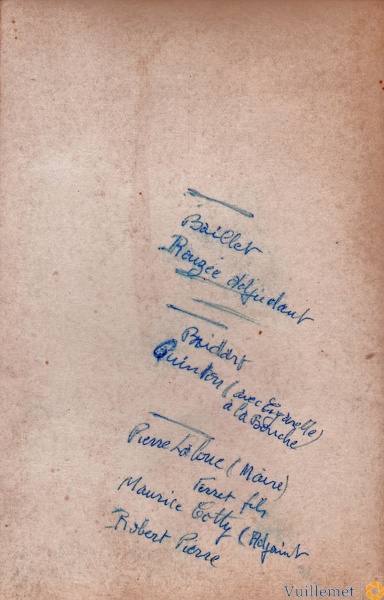 Baillet
Rougée adjudant
Boidart
Quinton (avec Cigarette)
à la Bouche
Pierre Lalouc (Maire)
Ferret fils
Maurice Cotty (Adjoint
Robert Pierre
Vuillemet